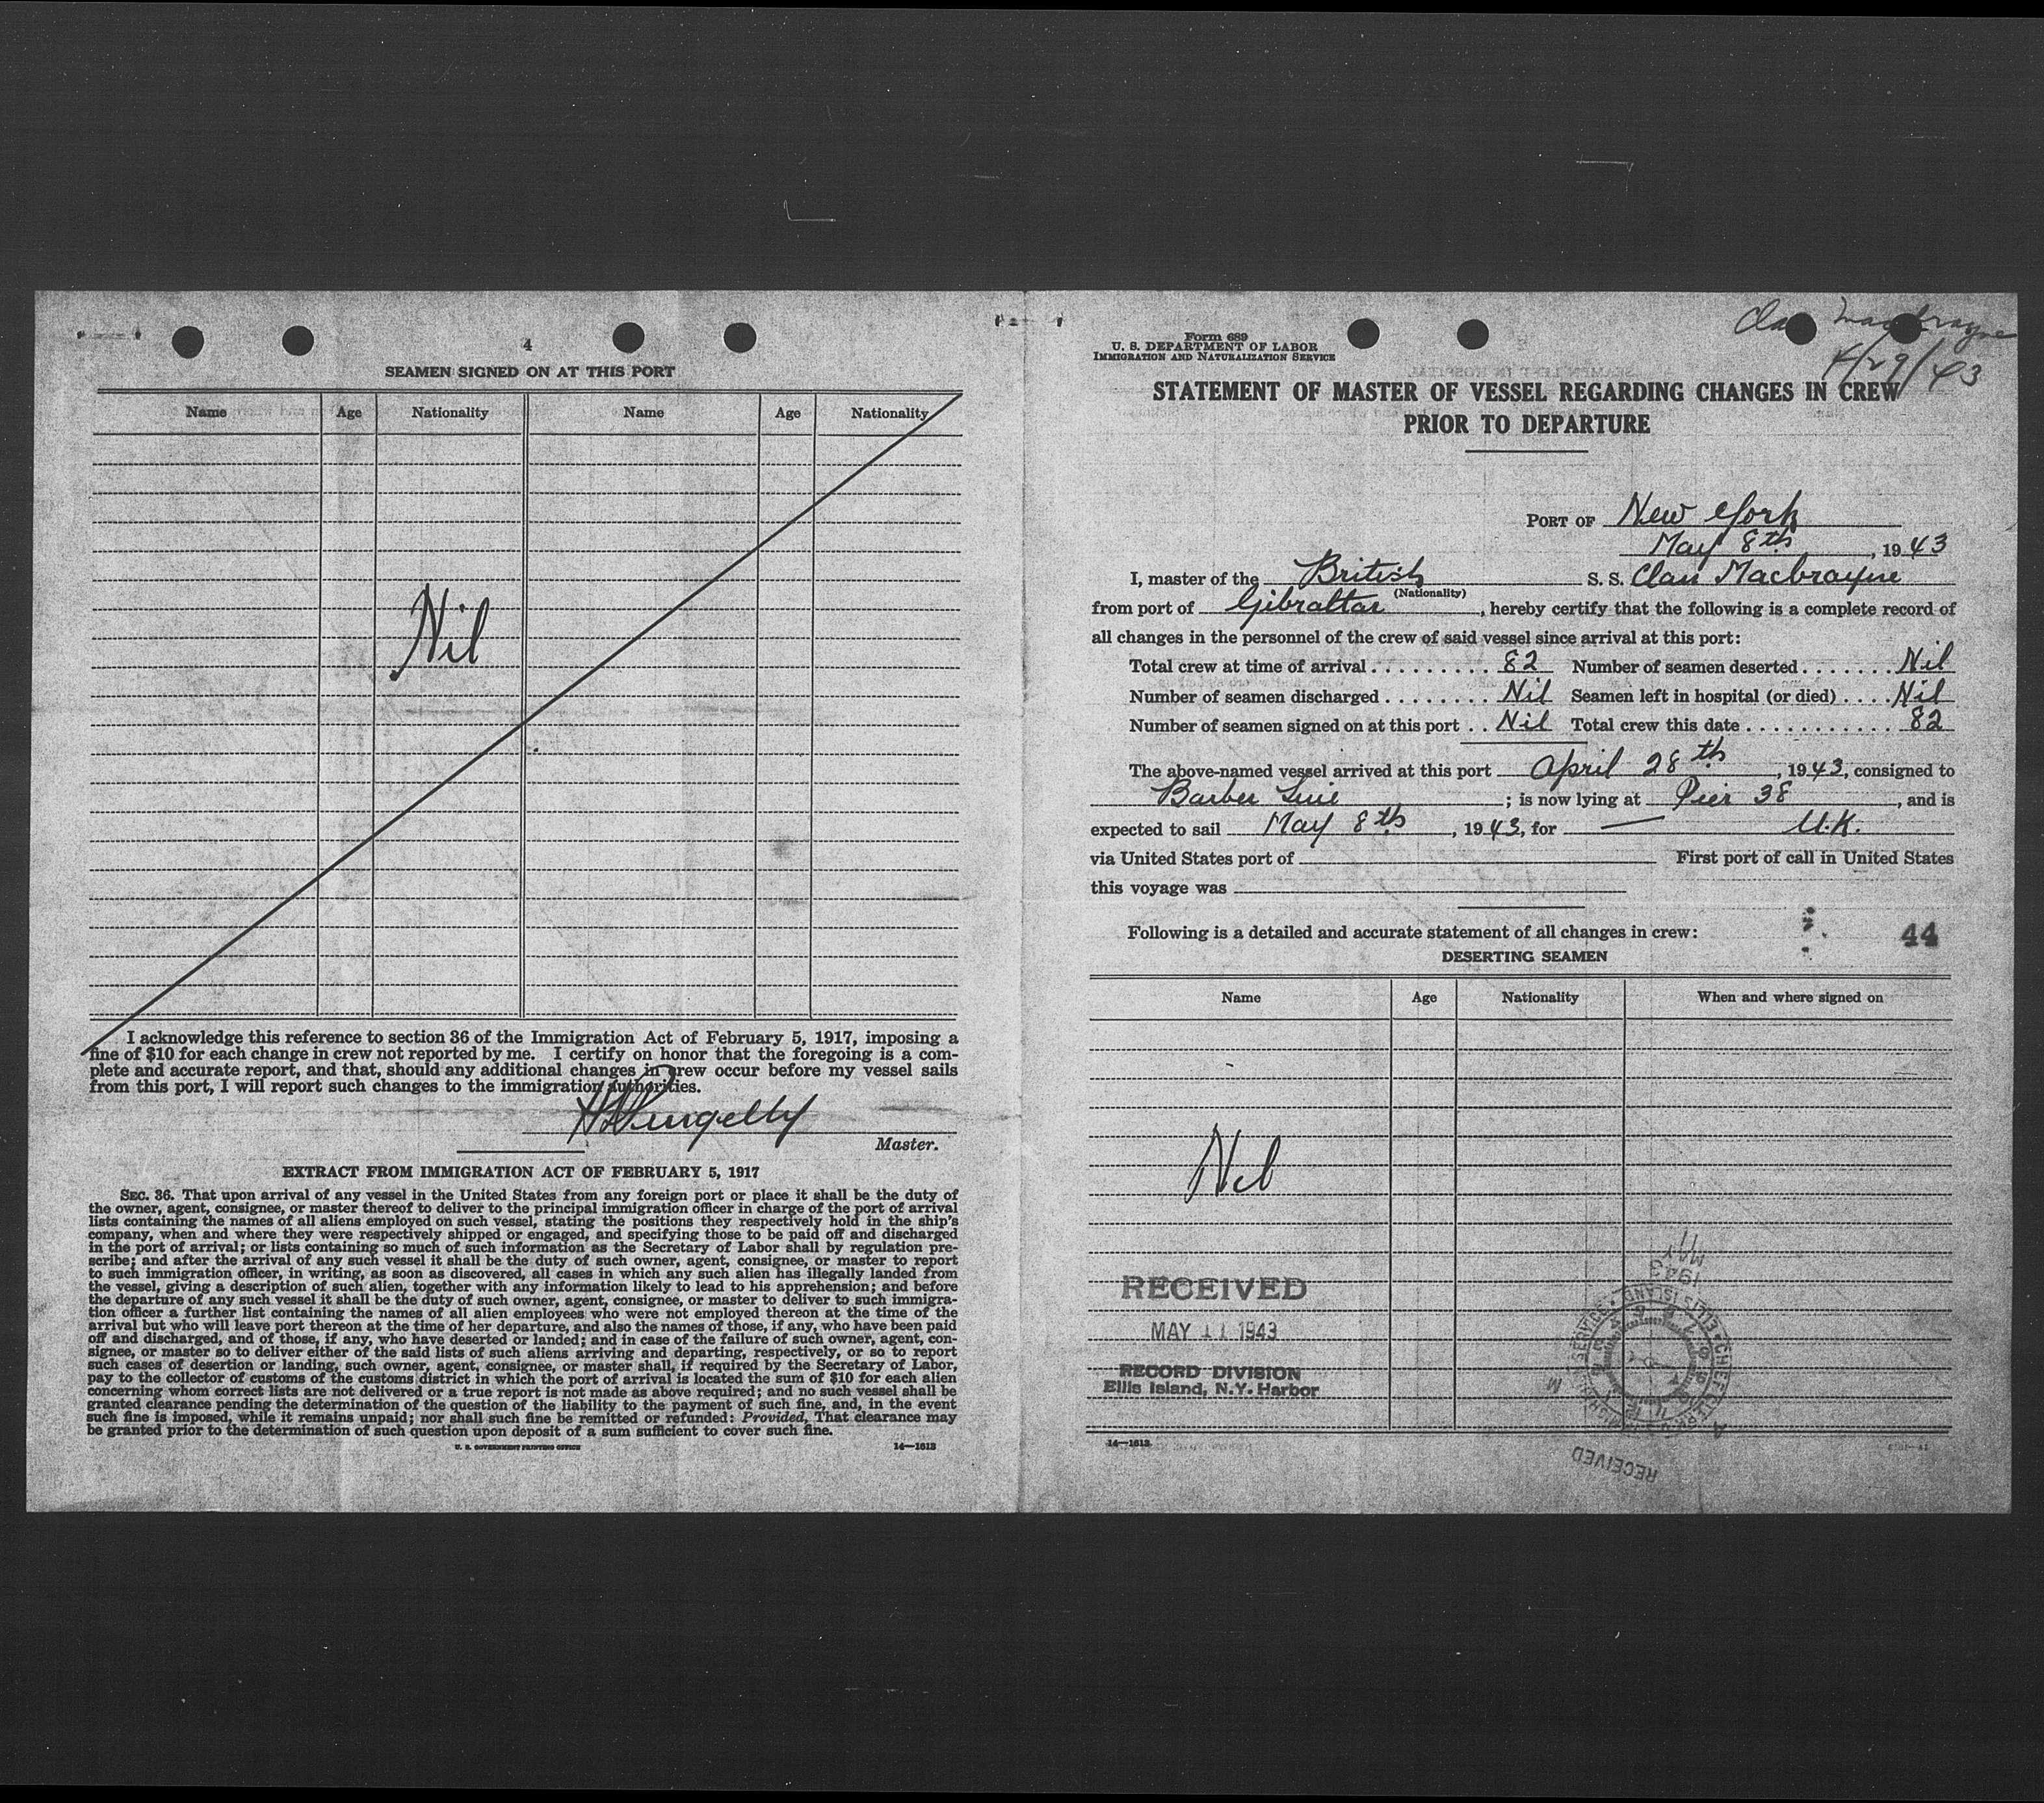 4
SEAMEN SIGNED ON AT THIS PORT
Name Age Nationality Name Age Nationality
Nil
I acknowledge this reference to section 36 of the Immigration Act of February 5, 1917, imposing a
fine of $10 for each change in crew not reported by me. I certify on honor that the foregoing is a com-
plete and accurate report, and that, should any additional changes in crew occur before my vessel sails
from this port, I will report such changes to the immigration authorities.
Master.
EXTRACT FROM IMMIGRATION ACT OF FEBRUARY 5, 1917
SEC. 36. That upon arrival of any vessel in the United States from any foreign port or place it shall be the duty of
the owner, agent, consignee, or master thereof to deliver to the principal immigration officer in charge of the port of arrival
lists containing the names of all aliens employed on such vessel, stating the positions they respectively hold in the ship's
company, when and where they were respectively shipped or engaged, and specifying those to be paid off and discharged
in the port of arrival; or lists containing so much of such information as the Secretary of Labor shall by regulation pre-
scribe; and after the arrival of any such vessel it shall be the duty of such owner, agent, consignee, or master to report
to such immigration officer, in writing, as soon as discovered, all cases in which any such alien has illegally landed from
the vessel, giving a description of such alien, together with any information likely to lead to his apprehension; and before
the departure of any such vessel it shall be the duty of such owner, agent, consignee, or master to deliver to such immigra-
tion officer a further list containing the names of all alien employees who were not employed thereon at the time of the
arrival but who will leave port thereon at the time of her departure, and also the names of those, if any, who have been paid
off and discharged, and of those, if any, who have deserted or landed; and in case of the failure of such owner, agent, con-
signee, or master so to deliver either of the said lists of such aliens arriving and departing, respectively, or so to report
such cases of desertion or landing, such owner, agent, consignee, or master shall, if required by the Secretary of Labor,
pay to the collector of customs of the customs district in which the port of arrival is located the sum of $10 for each alien
concerning whom correct lists are not delivered or a true report is not made as above required; and no such vessel shall be
granted clearance pending the determination of the question of the liability to the payment of such fine, and, in the event
such fine is imposed, while it remains unpaid; nor shall such fine be remitted or refunded: Provided, That clearance may
be granted prior to the determination of such question upon deposit of a sum sufficient to cover such fine.
U. S. GOVERNMENT PRINTING OFFICE 14—1613
Clan Macbrayne
4/29/43
Form 689
U. S. DEPARTMENT OF LABOR
IMMIGRATION AND NATURALIZATION SERVICE
STATEMENT OF MASTER OF VESSEL REGARDING CHANGES IN CREW
PRIOR TO DEPARTURE
PORT OF New York
May 8th, 1943
I, master of the British S. S. Clan Macbrayne
(Nationality)
from port of Gibraltar, hereby certify that the following is a complete record of
all changes in the personnel of the crew of said vessel since arrival at this port:
Total crew at time of arrival . . . . . . . . . 82 Number of seamen deserted . . . . . . . Nil
Number of seamen discharged . . . . . . . . Nil Seamen left in hospital (or died) . . . . Nil
Number of seamen signed on at this port . . Nil Total crew this date . . . . . . . . . . . . 82
The above-named vessel arrived at this port April 28th, 1943, consigned to
Barber Line; is now lying at Pier 38, and is
expected to sail May 8th, 1943, for — U.K.
via United States port of First port of call in United States
this voyage was
Following is a detailed and accurate statement of all changes in crew: 44
DESERTING SEAMEN
Name Age Nationality When and where signed on
Nil
RECEIVED
MAY 11 1943
RECORD DIVISION
Ellis Island, N.Y. Harbor
1943
MAY 11
CHIEF CLERK ELLIS ISLAND
RECEIVED
14—1613